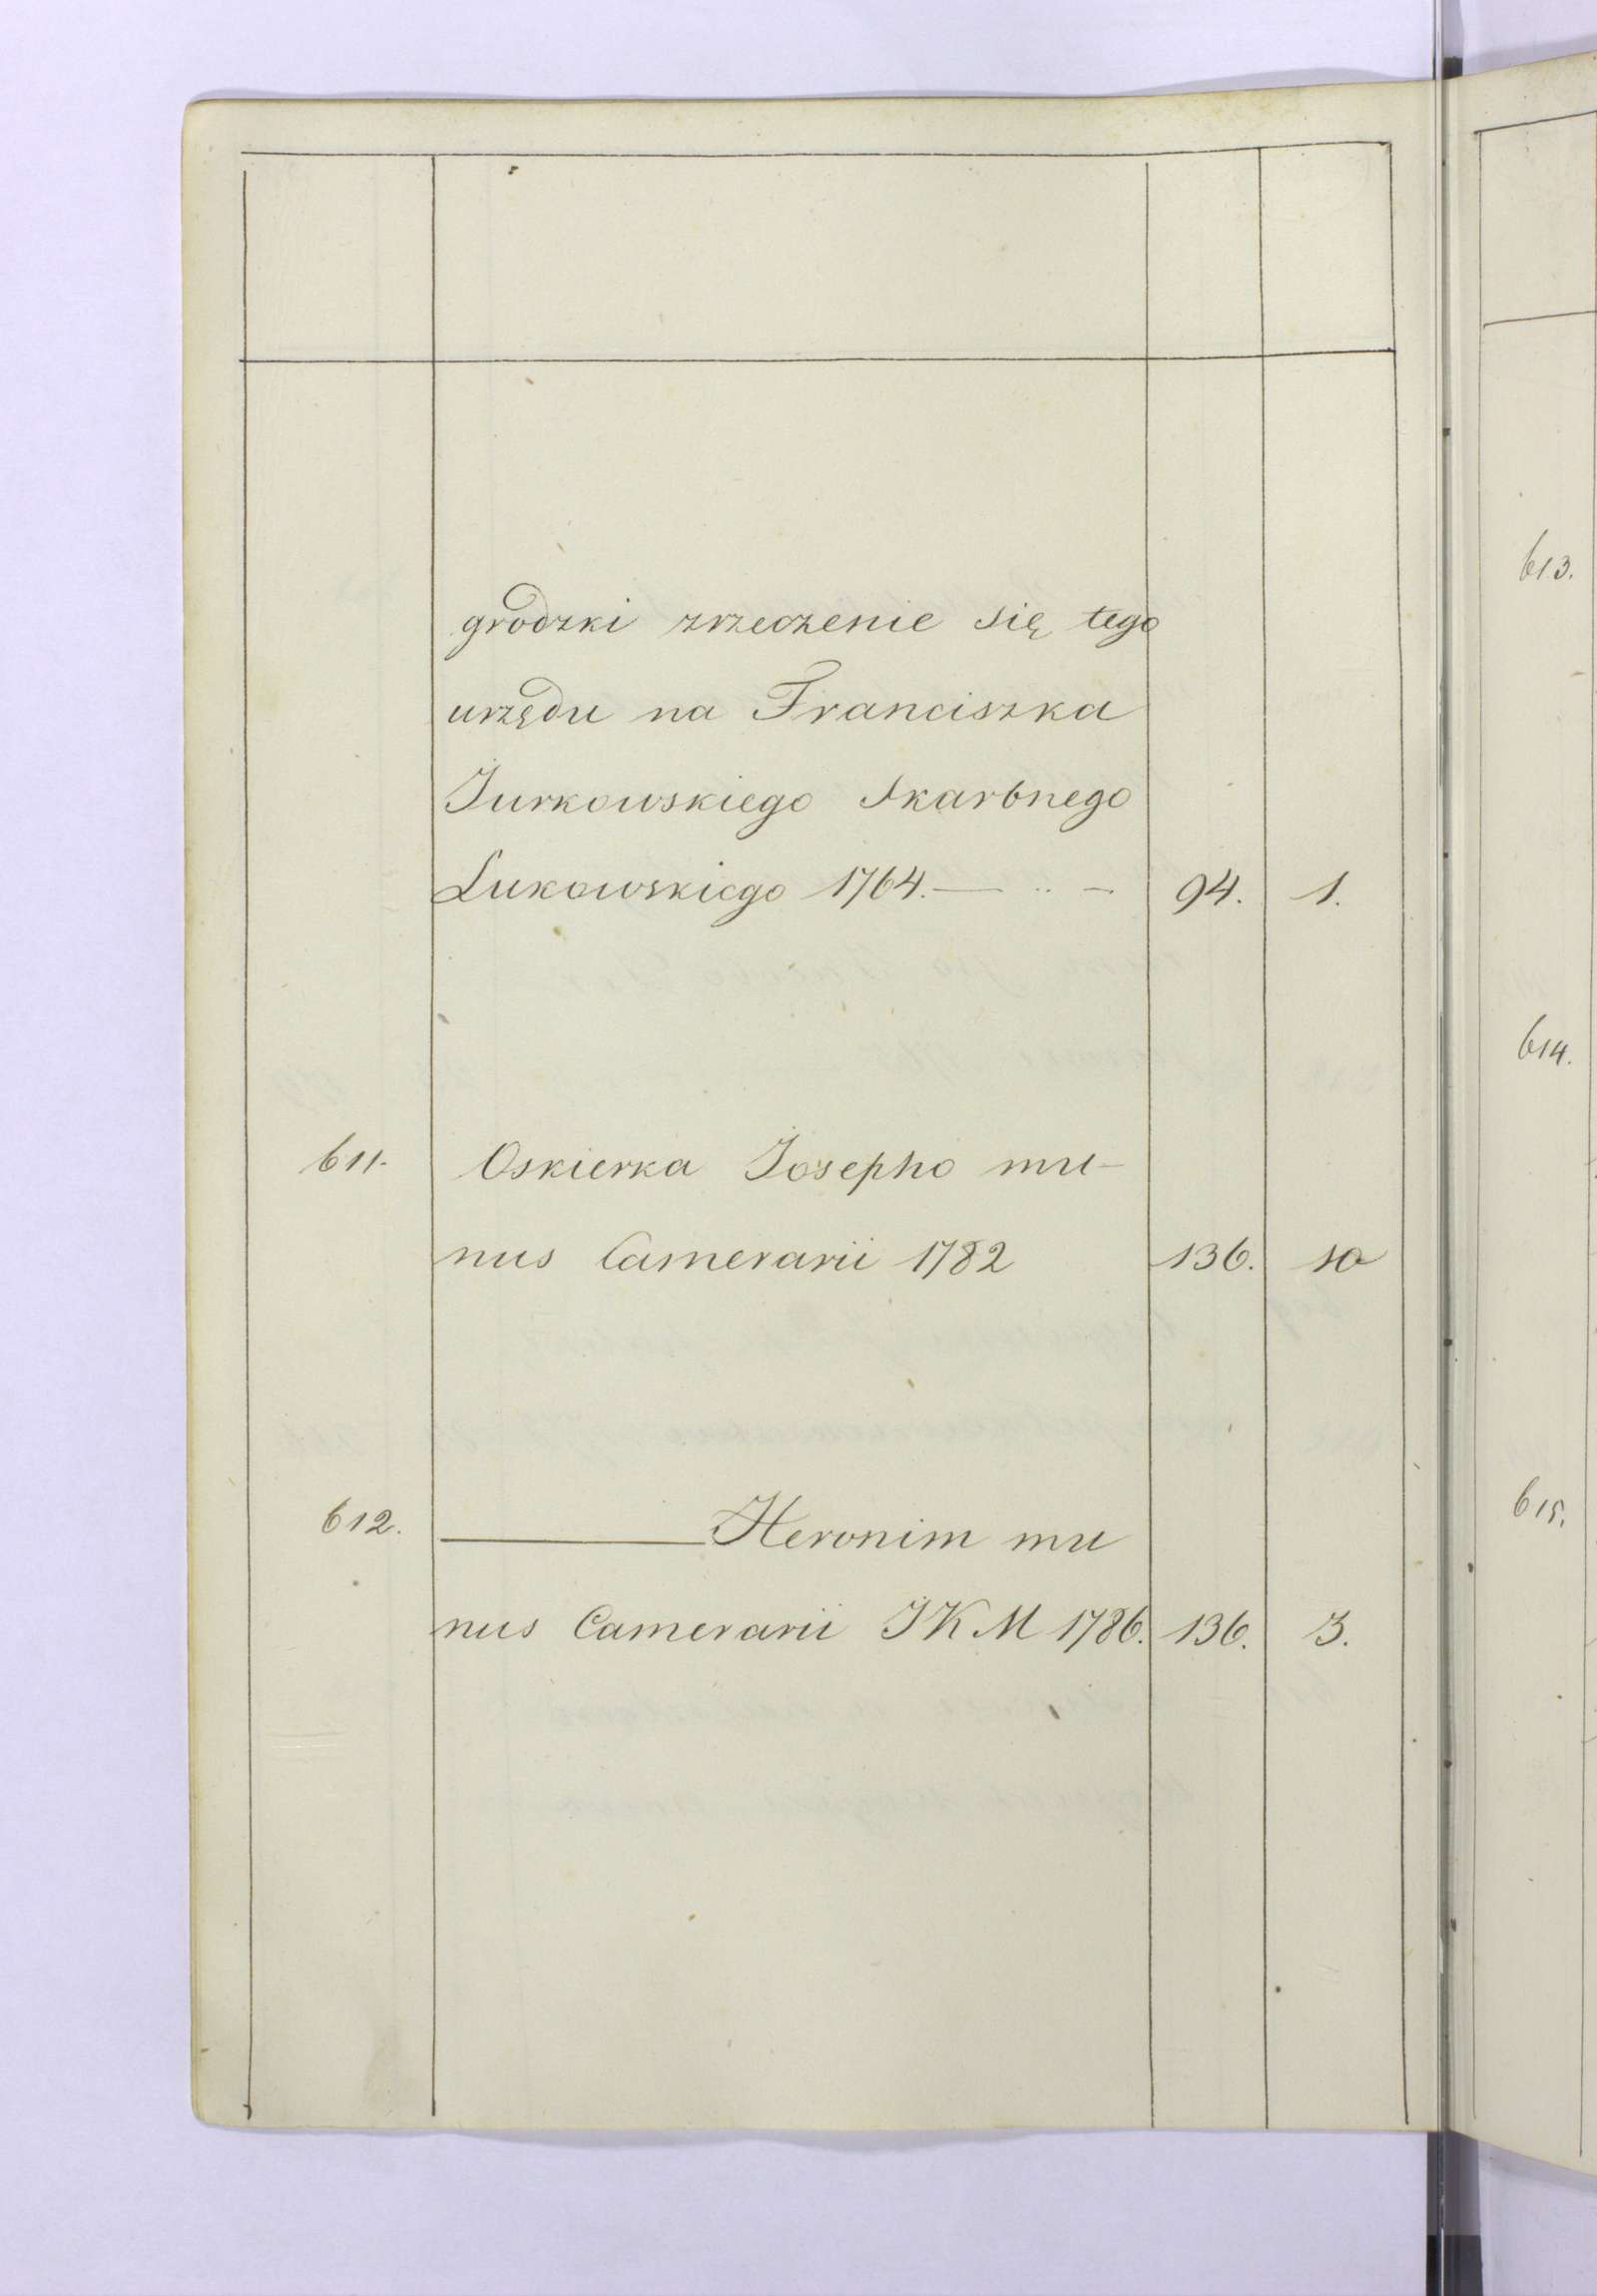 grodzki zrzeczenie się tego
urzędu na Franciszka
Jurkowskiego Skarbnego
Lukowskiego 1764. — .. — 94. 1.
611. Oskierka Josepho mu-
nus Camerarii 1782 136. 10
612. ——— Heronim mu
nus Camerarii JKM 1786. 136. 3.
613.
614.
615.